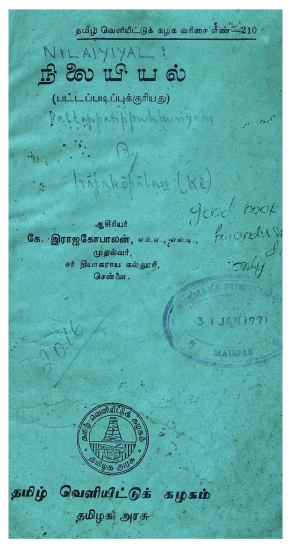 தமிழ் வெளியீட்டுக் கழக வரிசை எண்—210
NILAIYIYAL:
நிலையியல்
(பட்டப்படிப்புக்குரியது)
By
Irājakōpālan (Kē)
good book
ஆசிரியர்
கே. இராஜகோபாலன், எம்.ஏ., எல்.டி.,
முதல்வர்,
சர் தியாகராய கல்லூரி,
சென்னை.
31 JAN 1971
MADRAS
2016
தமிழ் வெளியீட்டுக் கழகம்
தமிழக அரசு
தமிழ் வெளியீட்டுக் கழகம்
தமிழக அரசு